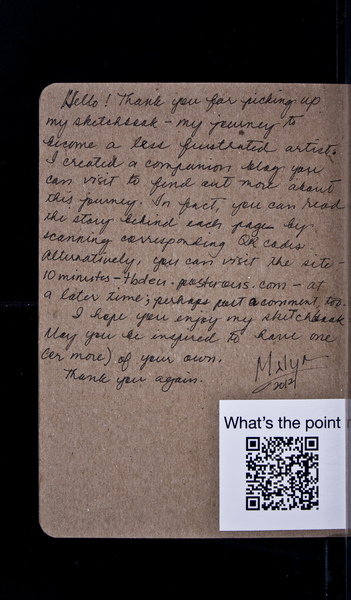 Hello! Thank you for picking up
my sketchbook - my journey to
become a less frustrated artist.
I created a companion blog you
can visit to find out more about
this journey. In fact, you can read
the story behind each page by
scanning corresponding QR codes.
Alternatively, you can visit the site -
10minutes-tbdcu.posterous.com - at
a later time; perhaps post a comment, too.
I hope you enjoy my sketchbook
May you be inspired to have one
(or more) of your own.
Thank you again.
2012
What's the point